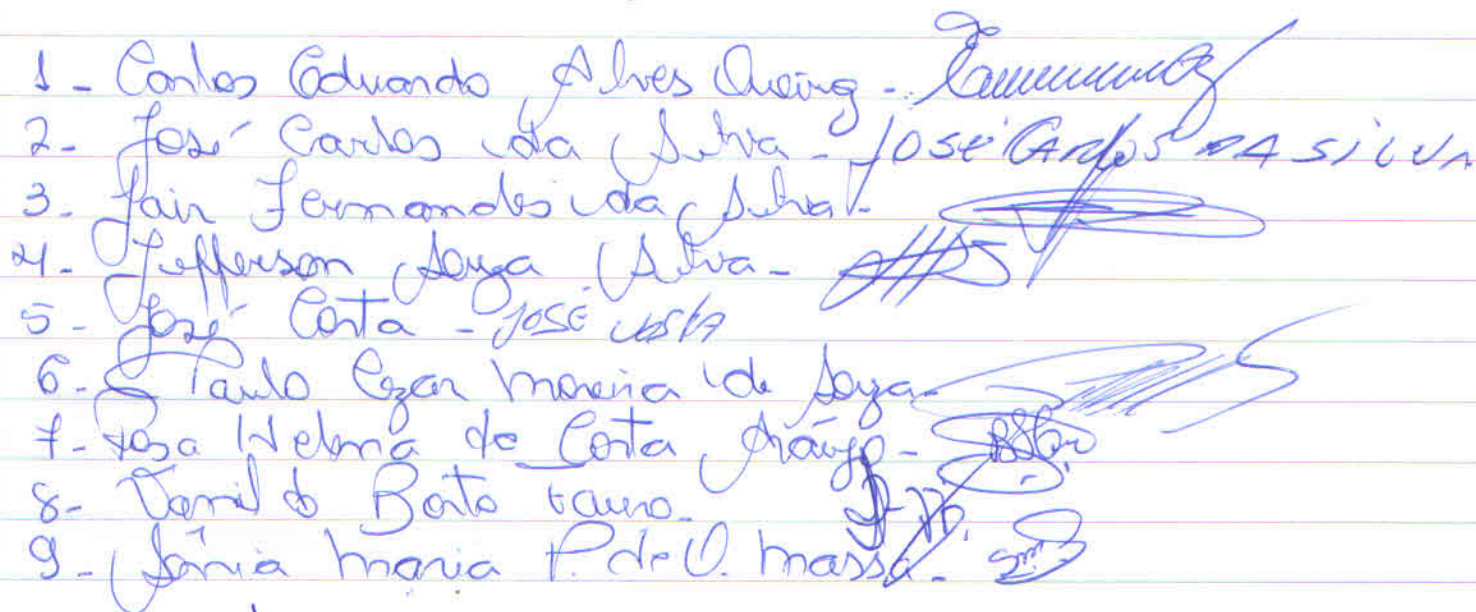 1 - Carlos Eduardo Alves Queiroz -
2 - José Carlos da Silva - JOSÉ CARLOS DA SILVA
3 - Jair Fernandes da Silva -
4 - Jefferson Souza Silva -
5 - José Costa - JOSÉ COSTA
6 - Paulo Cezar Moreira de Souza -
7 - Rosa Helma da Costa Araújo -
8 -
9 - Sônia Maria P. de O. Massa -